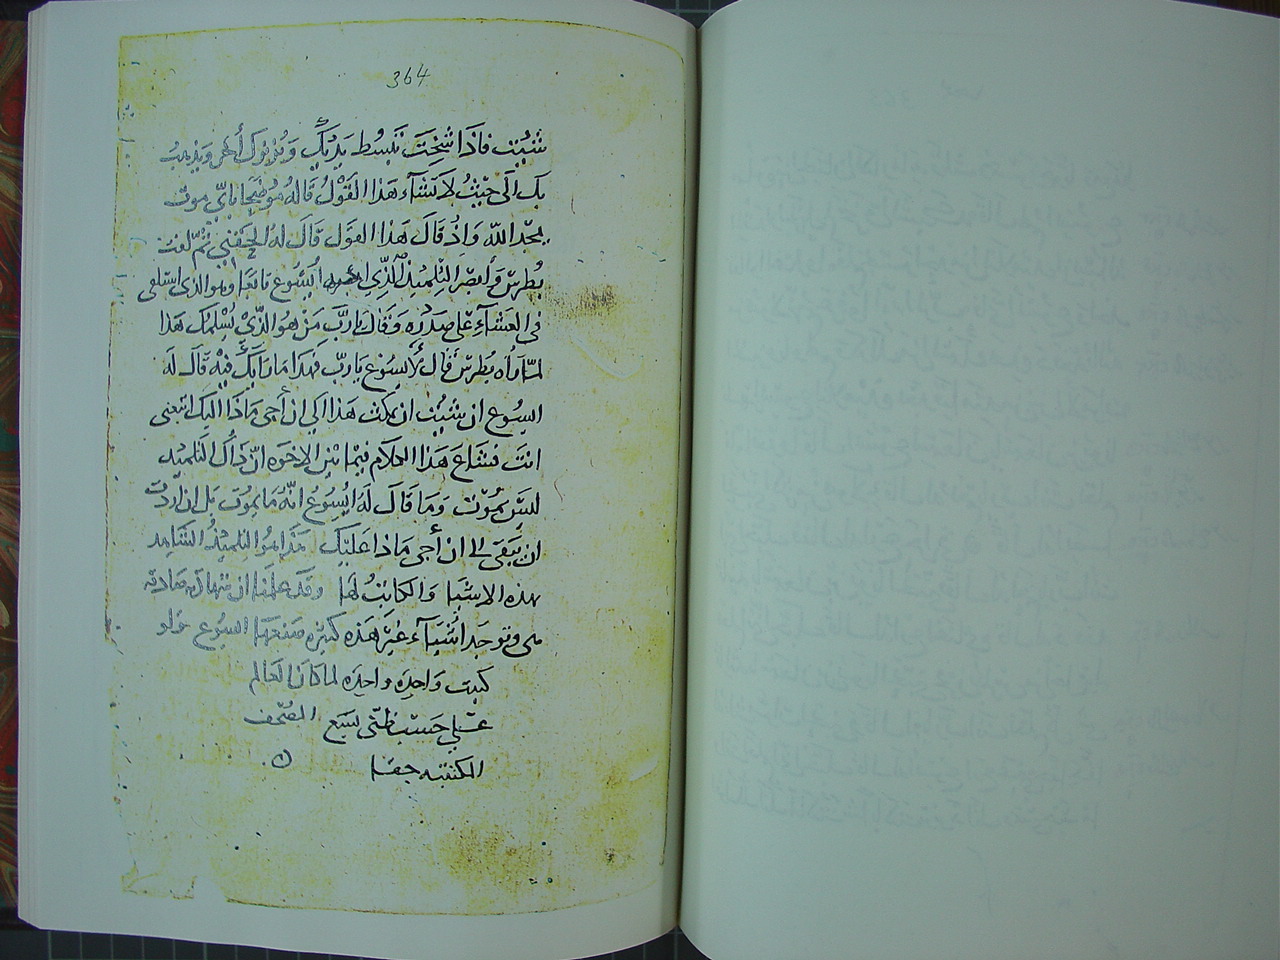 364
شئت فاذا شخت تبسط يديك ويزنرك آخر ويذهب
بك الى حيث لا تشآء هذا القول قاله موضحا باىّ موت
يمجد الله واذ قال هذا القول قال له الحقني ثم التفت
بطرس وابصر التلميذ الذي ايسوع تابعا وهو الذى استلقى
فى العشآء على صدره وقال يا ربّ من هو الذي يسلمك هذا
لمّا رآه بطرس قال لايسوع يا ربّ فهذا ما رايك فيه قال له
ايسوع ان شئت ان يمكث هذا الى ان أجى ماذا اليك اتبعنى
انت فشاع هذا الكلام فيما بين الاخوه انّ ذاك التلميذ
ليس يموت وما قال له ايسوع انّه ما يموت بل ان اردت
ان يبقى الى ان أجى ماذا عليك هذا هو التلميذ الشاهد
بهذه الاشيا والكاتب لها وقد علمنا ان شهادته صادقه
هى وتوجد أشيآء غير هذه كثيره صنعها ايسوع ولو
كتبت واحده واحده لما كان العالم
على حسب ظنّى يسع المصحف
المكتتبه حقا